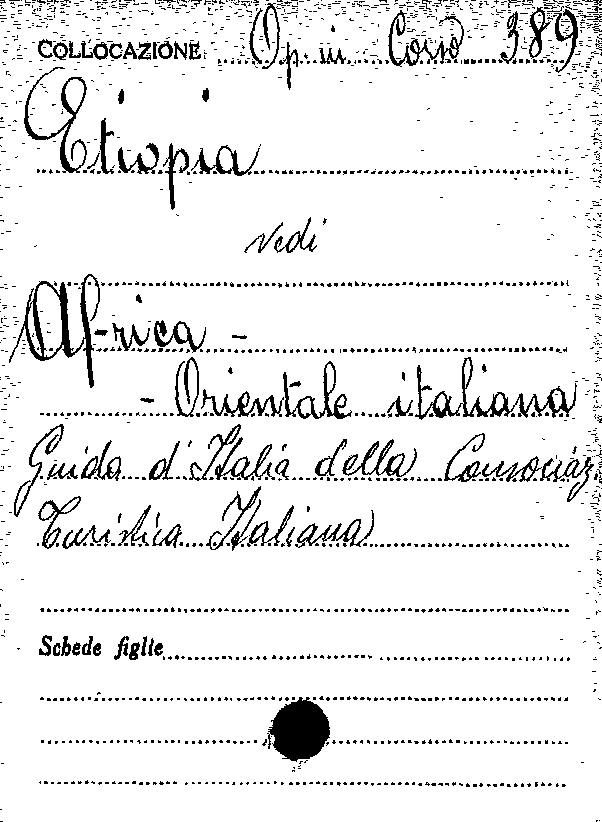 COLLOCAZIONE Op. in Corso 389
Etiopia
vedi
Africa -
- Orientale italiana
Guida d'Italia della Consociaz
Turistica Italiana
Schede figlie